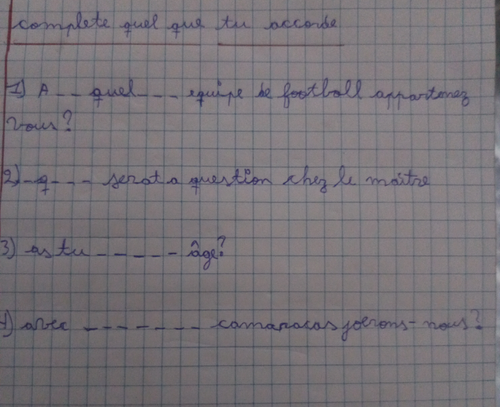 complete quel que tu accorde
1) A _ _ quel _ _ _ equipe de football appartenez
vous?
2) _ q _ _ _ serat a question chez le maître
3) as tu _ _ _ _ _ âge?
4) avec _ _ _ _ _ _ _ camaracas joerons-nous?